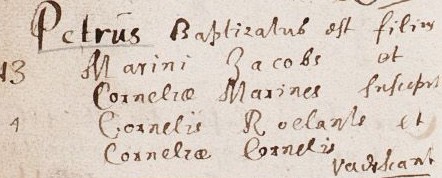 Petrus Baptizatus est filius
13 Marini Jacobs et
Corneliæ Marines suscept
4 Cornelis Roelants et
Corneliæ Cornelis